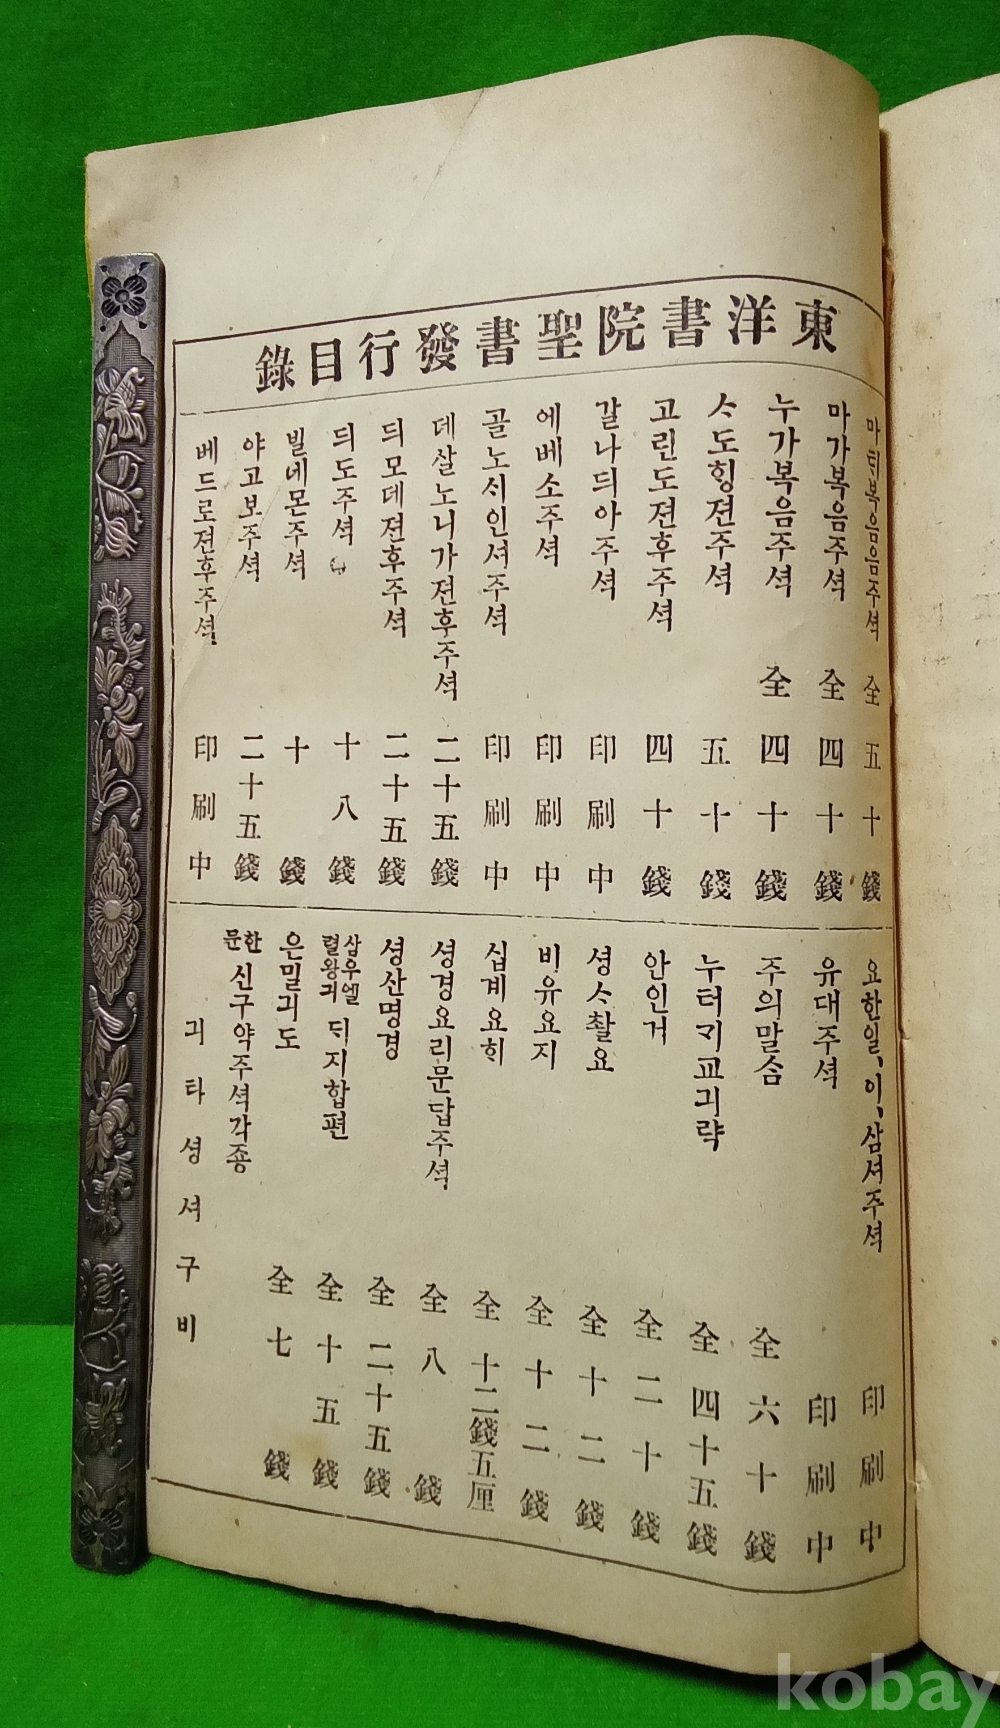 東洋書院聖書發行目錄
마태복음음주셕 全 五十錢
마가복음주셕 全 四十錢
누가복음주셕 全 四十錢
ᄉ도ᄒᆡᆼ젼주셕 五十錢
고린도젼후주셕 四十錢
갈나듸아주셕 印刷中
에베소주셕 印刷中
골노시인셔주셕 印刷中
데살노니가젼후주셕 二十五錢
듸모데젼후주셕 二十五錢
듸도주셕 十八錢
빌네몬주셕 十錢
야고보주셕 二十五錢
베드로젼후주셕 印刷中
요한일、이、삼셔주셕 印刷中
유대주셕 印刷中
주의말ᄉᆞᆷ 全 六十錢
누터ᄀᆡ교긔략 全 四十五錢
안인거 全 二十錢
셩ᄉ촬요 全 十二錢
비유요지 全 十二錢
십계요ᄒᆡ 全 十二錢五厘
셩경요리문답주셕 全 八錢
셩산명경 全 二十五錢
삼우엘 렬왕긔 ᄃᆡ지합편 全 十五錢
은밀긔도 全 七錢
한문 신구약주셕각죵
긔타셩셔구비
kobay